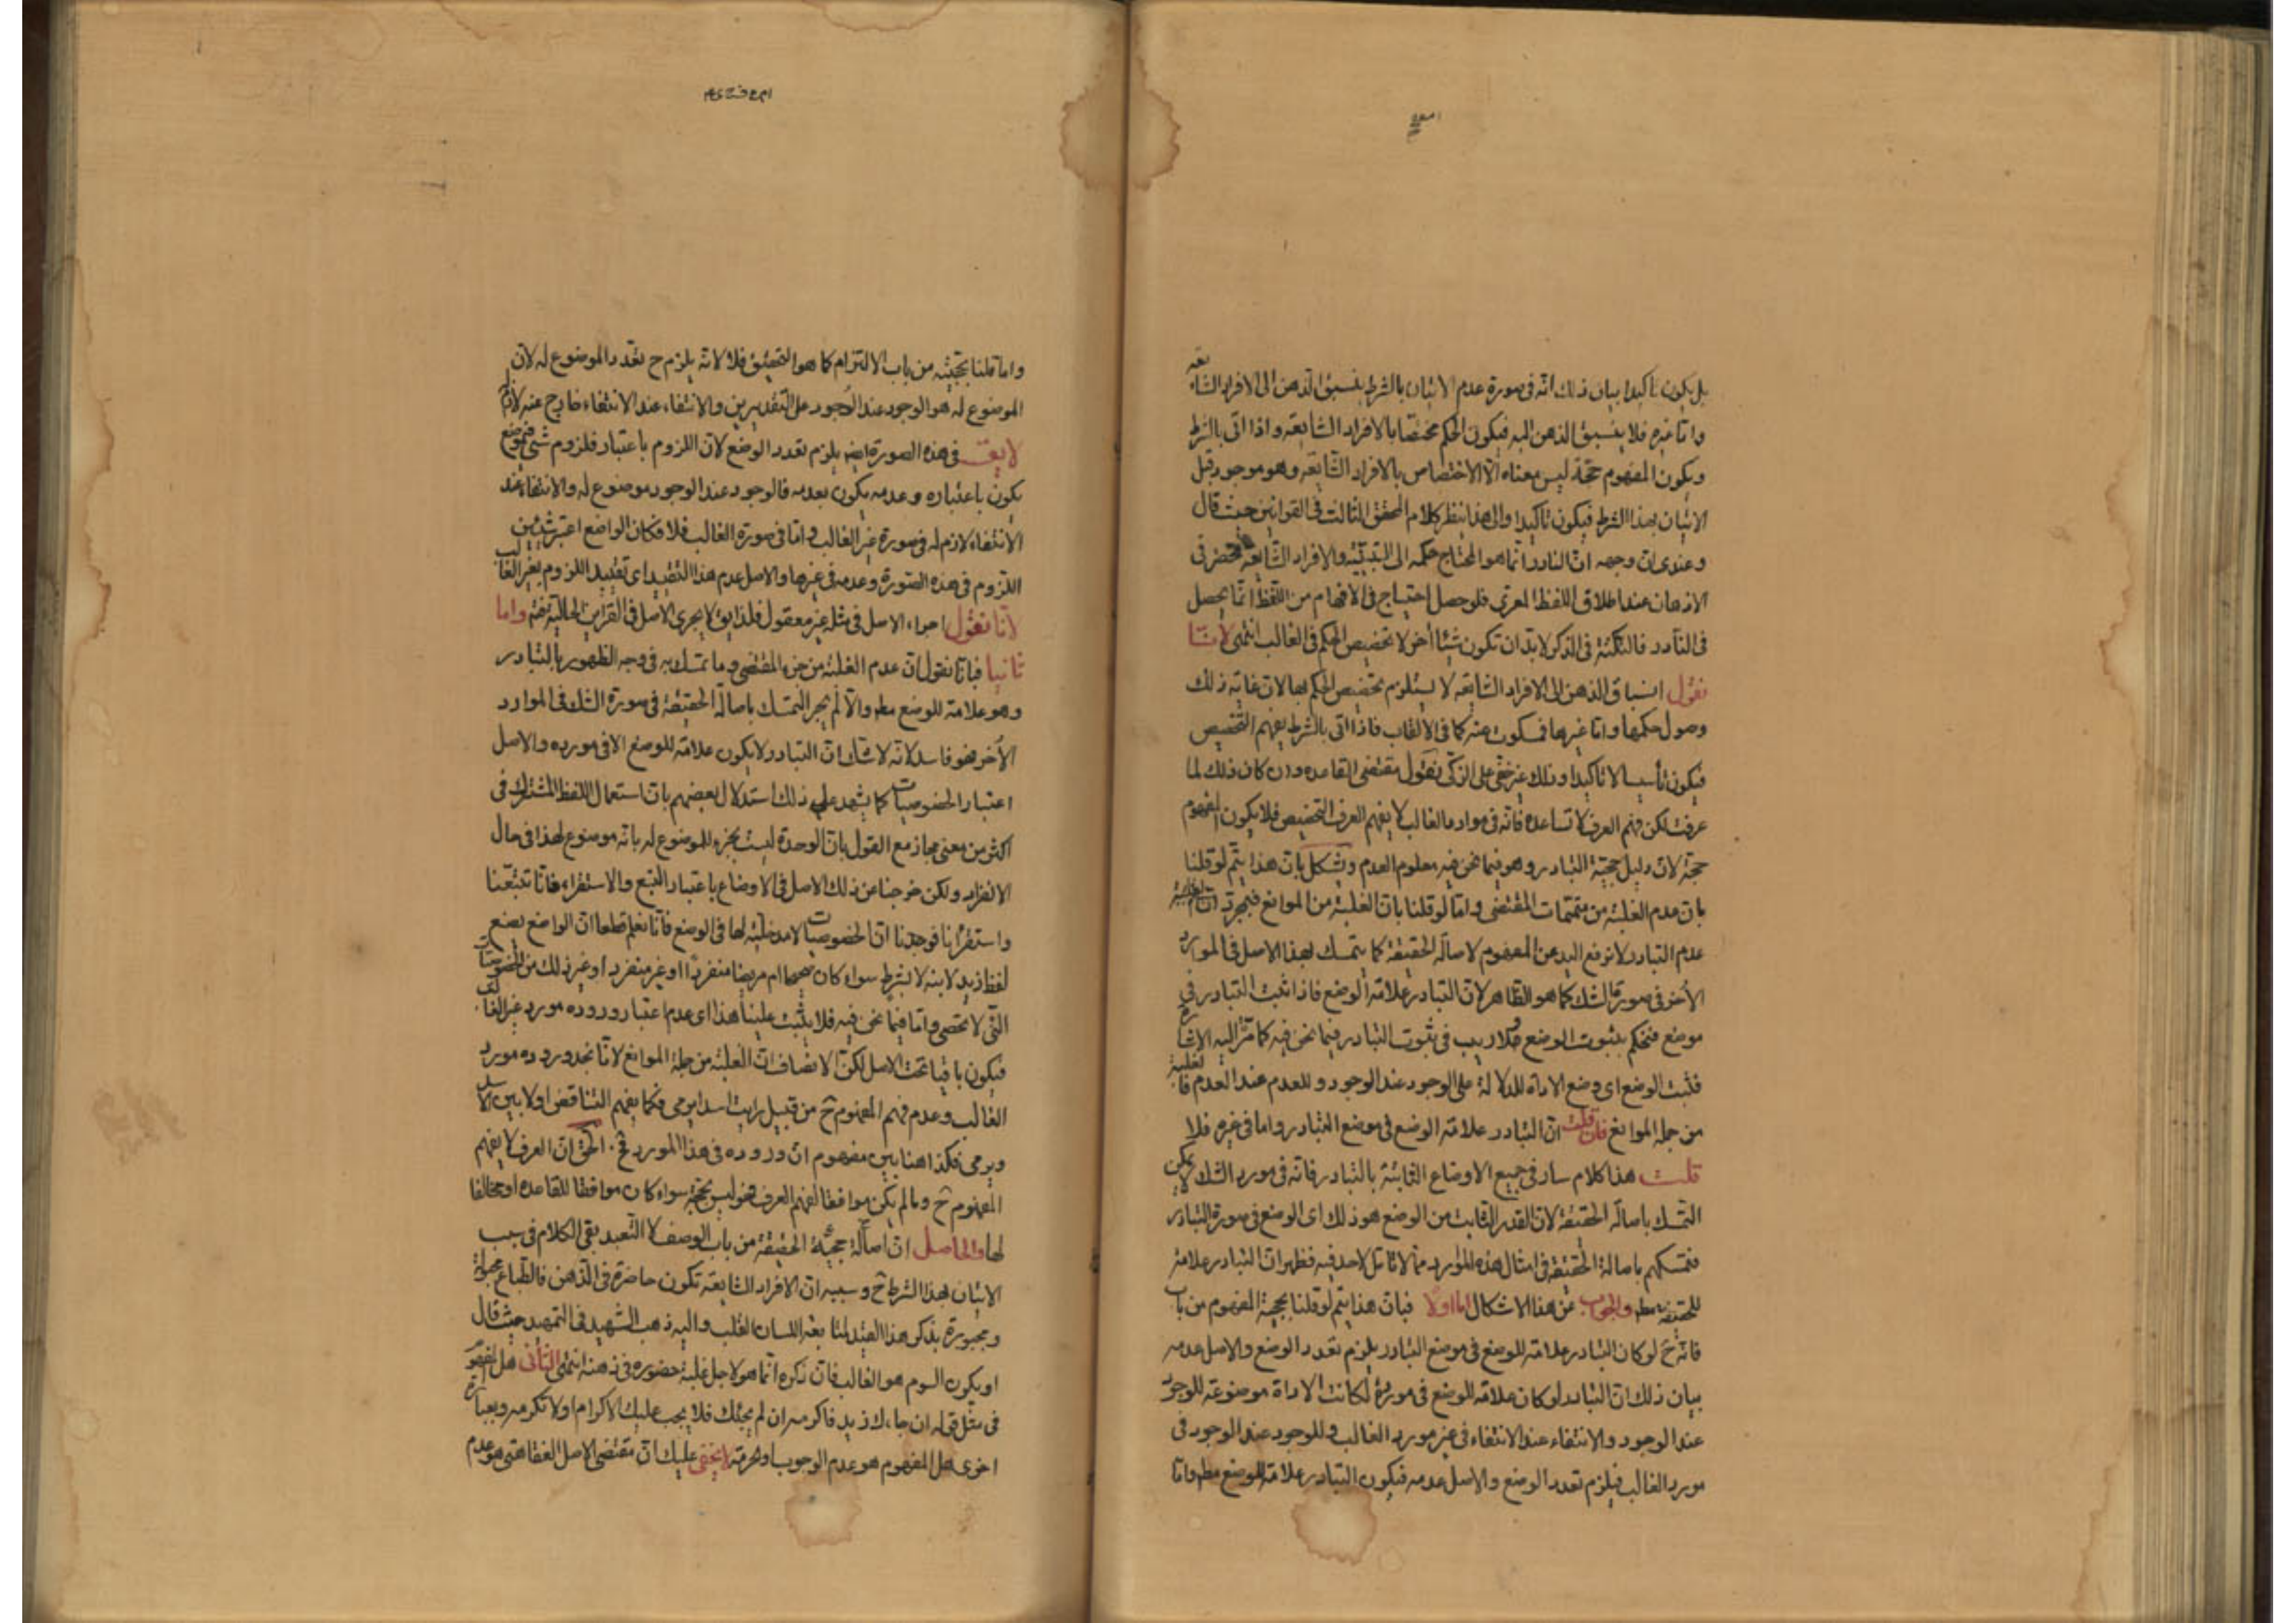 بل يكون تاكيدا بيان ذلك انه فى صورة عدم الاتيان بالشرط ينسبق الذهن الى الافراد الشايعه
واما غيره فلا ينسبق الذهن اليه فيكون الحكم مختصا بالافراد الشايعه واذا اتى بالشرط
ويكون المفهوم حجة ليس معناه الا الاختصاص بالافراد الشايعه وهو موجود قبل
الاتيان بهذا الشرط فيكون تاكيدا والى هذا ينظر كلام المحقق الثالث فى القوانين حيث قال
وعندى ان وجهه ان النادر انما هو المحتاج حكمه الى التنبيه والافراد الشايعه تحضر فى
الاذهان عند اطلاق اللفظ المعرى فلو حصل احتياج فى الافهام من اللفظ انما يحصل
فى النادر فالنكتة فى الذكر لابد ان تكون شيئا آخر لا تخصيص الحكم فى الغالب انتهى لانا
نقول انسباق الذهن الى الافراد الشايعه لا يستلزم تخصيص الحكم بها لان غايه ذلك
وصول حكمها واما غيرها فمسكوت عنه كما فى الالقاب فاذا اتى بالشرط يفهم التخصيص
فيكون تأسيسا لا تاكيدا وذلك غير خفى على الزكى نقول مقتضى القاعده وان كان ذلك لما
عرفت لكن فهم العرف لا تساعده فانه فى موارد الغالب لا يفهم العرف التخصيص فلا يكون المفهوم
حجة لان دليل حجية التبادر وهو فيما نحن فيه معلوم العدم ويشكل بان هذا يتم لو قلنا
بان عدم الغلبة من متممات المقتضى واما لو قلنا بان الغلبة من الموانع فبمجرد
عدم التبادر لا نرفع اليد عن المفهوم لاصالة الحقيقة كما يتمسك بهذا الاصل فى الموارد
الأخر فى صورة الشك كما هو الظاهر لان التبادر علامة الوضع فاذا ثبت التبادر فى
موضع فنحكم بثبوت الوضع ولا ريب فى ثبوت التبادر فيما نحن فيه كما مر اليه الاشارة
فثبت الوضع اى وضع الاداة للدلالة على الوجود عند الوجود وللعدم عند العدم فالغلبة
من جمله الموانع فان قلت ان التبادر علامة الوضع فى موضع التبادر واما فى غيره فلا
قلت هذا كلام سار فى جميع الاوضاع الثابتة بالتبادر فانه فى مورد الشك لا يمكن
التمسك باصالة الحقيقة لان القدر الثابت من الوضع هو ذلك اى الوضع فى صورة التبادر
فتمسكهم باصالة الحقيقة فى امثال هذه الموارد مما لا تأمل لاحد فيه فظهر ان التبادر علامة
للحقيقة مطه والجواب عن هذا الاشكال اما اولا فبان هذا يتم لو قلنا بحجية المفهوم من باب
فانه ح لو كان التبادر علامة للوضع فى موضع التبادر يلزم تعدد الوضع والاصل عدمه
بيان ذلك ان التبادر لو كان علامة للوضع فى مورده لكانت الاداة موضوعة للوجود
عند الوجود والانتفاء عند الانتفاء فى غير مورد الغالب وللوجود عند الوجود فى
مورد الغالب فيلزم تعدد الوضع والاصل عدمه فيكون التبادر علامة للوضع مطه واما
واما قلنا بحجيته من باب الالتزام كما هو التحقيق فلا لانه يلزم ح تعدد الموضوع له لان
الموضوع له هو الوجود عند الوجود على التقديرين والانتفاء عند الانتفاء خارج عنه لازم له
لا يق فى هذه الصورة ايضا يلزم تعدد الوضع لان اللزوم باعتبار فلزوم شئ
يكون باعتباره وعدمه يكون بعدمه فالوجود عند الوجود موضوع له والانتفاء عند
الانتفاء لازم له فى صورة غير الغالب واما فى صورة الغالب فلا فكان الواضع اعتبر شيئين
اللزوم فى هذه الصورة وعدمه فى غيرها والاصل عدم هذا التقييد اى تقييد اللزوم بغير الغالب
لانا نقول اجراء الاصل فى مثله غير معقول فلذا يق لا يجرى الاصل فى القراين الحالية فته واما
ثانيا فبانا نقول ان عدم الغلبة من جزء المقتضى وما تمسك به فى وجه الظهور بالتبادر
وهو علامة للوضع مطه والا لم يجز التمسك باصالة الحقيقة فى صورة الشك فى الموارد
الأخر فهو فاسد لانه لا شك ان التبادر لا يكون علامة للوضع الا فى مورده والاصل
اعتبار الخصوصيات كما يشهد على ذلك استدلال بعضهم بان استعمال اللفظ المشترك فى
اكثر من معنى مجاز مع القول بان الوحدة ليست بجزء للموضوع له بانه موضوع لهذا فى حال
الانفراد ولكن خرجنا عن ذلك الاصل فى الاوضاع باعتبار التتبع والاستقراء فانا تتبعنا
واستقرأنا فوجدنا ان الخصوصيات لا مدخلية لها فى الوضع فانا نعلم قطعا ان الواضع يضع
لفظ زيد لابنه لا بشرط سواء كان صحيحا ام مريضا منفردا او غير منفرد او غير ذلك من الخصوصيات
التى لا تحصى واما فيما نحن فيه فلا يثبت علينا هذا اى عدم اعتبار وروده مورد غير الغالب
فيكون باقيا تحت الاصل لكن الانصاف ان الغلبة من جملة الموانع لانا نجد وروده مورد
الغالب وعدم فهم المفهوم ح من قبيل رايت اسدا يرمى فكما يفهم التناقض اولا بين الاسد
ويرمى فكذا هنا بين مفهوم ان وروده فى هذا المورد ح الحق ان العرف لا يفهم
المفهوم ح وما لم يكن موافقا لفهم العرف فهو ليس بحجة سواء كان موافقا للقاعده او مخالفا
لها والحاصل ان اصالة حجية الحقيقة من باب الوصف لا التعبد بقى الكلام فى سبب
الاتيان بهذا الشرط ح وسببه ان الافراد الشايعه تكون حاضرة فى الذهن فالطباع مجبولة
ومجبورة بذكر هذا القيد لمتابعة اللسان القلب واليه ذهب الشهيد فى التمهيد حيث قال
او يكون السوم هو الغالب فان ذكره انما هو لاجل غلبة حضوره فى ذهنه انتهى الثانى هل المفهوم
فى مثل قوله ان جاءك زيد فاكرمه ان لم يجئك فلا يجب عليك الاكرام او لا تكرمه وبعبارة
اخرى هل المفهوم هو عدم الوجوب او الحرمة لا يخفى عليك ان مقتضى الاصل الفقاهتى هو عدم